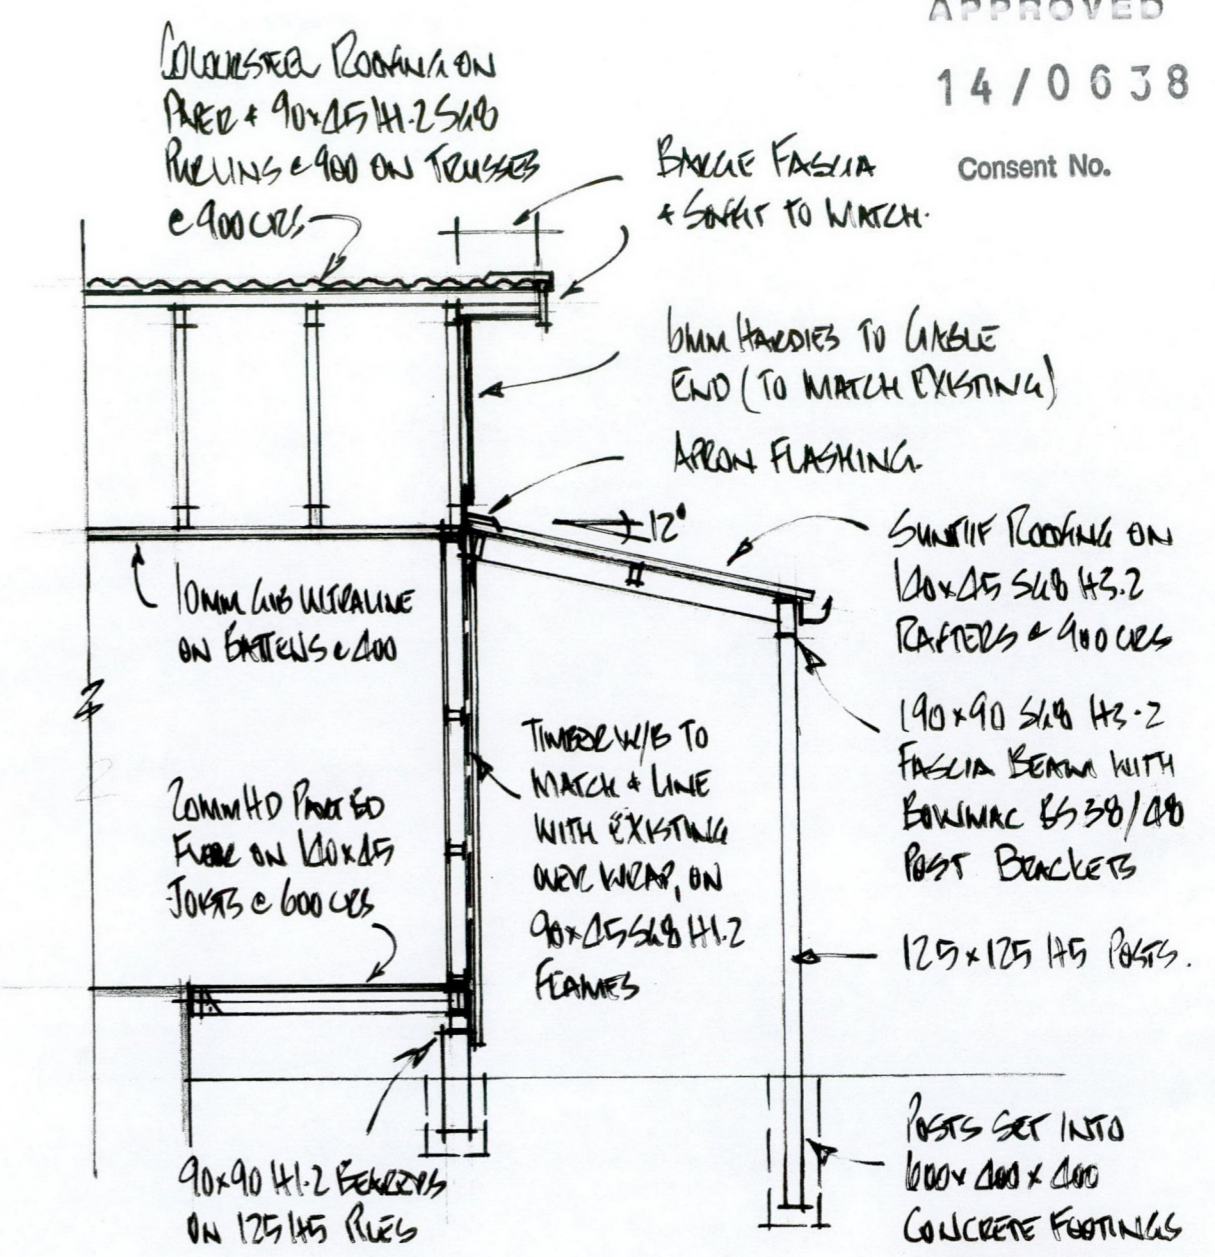 APPROVED
14/0638
Consent No.
COLOURSTEEL ROOFING ON
PAPER + 90x45 H1.2 SG8
PURLINS @ 900 ON TRUSSES
@ 900 CRS
BARGE FASCIA
+ SOFFIT TO MATCH.
6MM HARDIES TO GABLE
END (TO MATCH EXISTING)
APRON FLASHING.
12°
SUNTUF ROOFING ON
140x45 SG8 H3.2
RAFTERS @ 900 CRS
10MM GIB ULTRALINE
ON BATTENS @ 400
190x90 SG8 H3.2
FASCIA BEAM WITH
BOWMAC B538/48
POST BRACKETS
TIMBER W/B TO
MATCH + LINE
WITH EXISTING
OVER WRAP, ON
90x45 SG8 H1.2
FRAMES
20MM HD PART BD
FLOOR ON 140x45
JOISTS @ 600 CRS
125x125 H5 POSTS.
90x90 H1.2 BEARERS
ON 125 H5 PILES
POSTS SET INTO
600x400x400
CONCRETE FOOTINGS